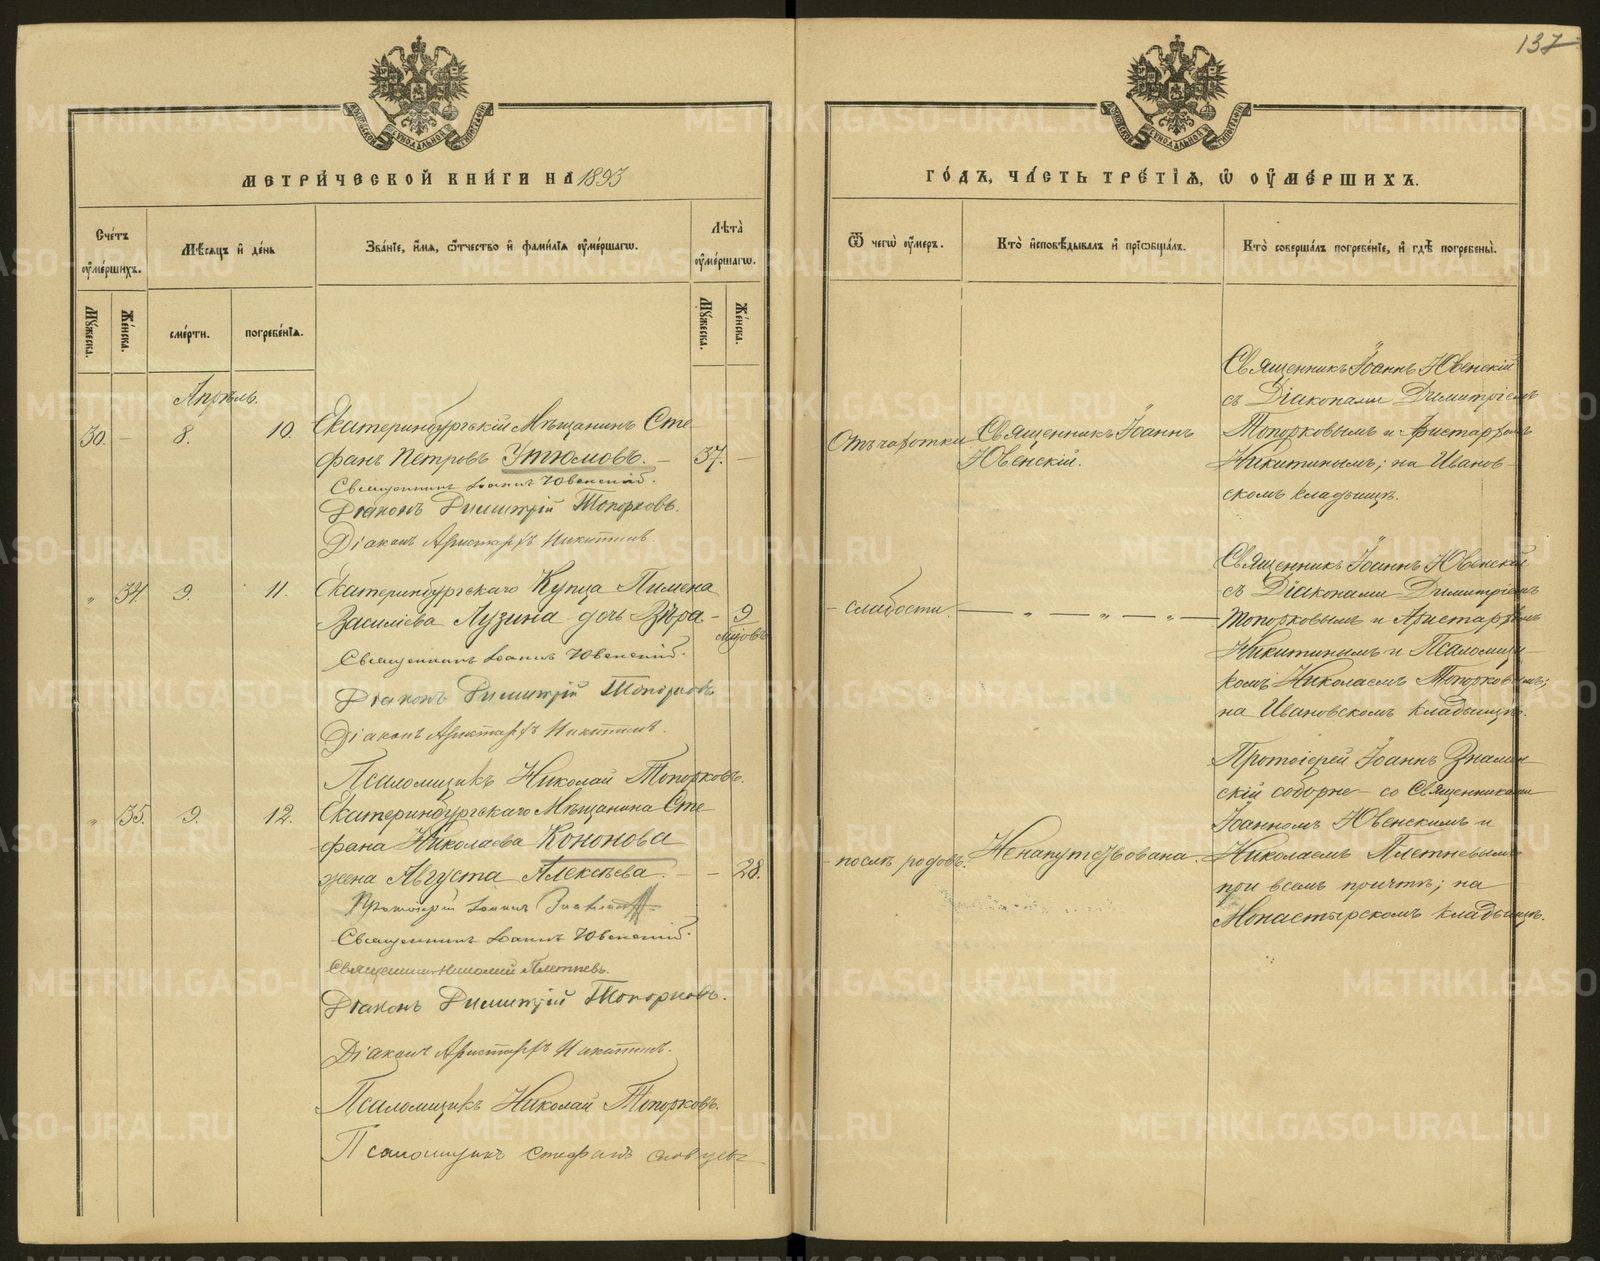 137
МЕТРИЧЕСКОЙ КНИГИ НА 1893
ГОДЪ, ЧАСТЬ ТРЕТІѦ, Ѡ ОУМЕРШИХЪ.
Счетъ оумершихъ.
Мѣсяцъ и день
Званіе, имя, ѿчество и фамиліѧ оумершагѡ.
Лѣта оумершагѡ.
Ѿ чегѡ оумеръ.
Кто исповѣдывалъ и пріѡбщалъ.
Кто совершалъ погребеніе, и гдѣ погребены.
Мужеска.
Женска.
смерти.
погребеніѧ.
Мужеска.
Женска.
Апрѣль.
30. — 8. 10.
Екатеринбургскій Мѣщанинъ Сте-
фанъ Петровъ Утюмовъ. — 37. —
Священникъ Іоаннъ Ювенскій.
Діаконъ Димитрій Топорковъ.
Діаконъ Аристархъ Никитинъ.
Отъ чахотки
Священникъ Іоаннъ
Ювенскій.
Священникъ Іоаннъ Ювенскій
съ Діаконами Димитріемъ
Топорковымъ и Аристархомъ
Никитинымъ; на Иванов-
скомъ кладбищѣ.
„ 34. 9. 11.
Екатеринбургскаго Купца Пимена
Василіева Лузина дочь Вѣра — 9
мѣсяцовъ
Священникъ Іоаннъ Ювенскій.
Діаконъ Димитрій Топорковъ
Діаконъ Аристархъ Никитинъ.
Псаломщикъ Николай Топорковъ.
- слабости — „ — „ — „ —
Священникъ Іоаннъ Ювенскій
съ Діаконами Димитріемъ
Топорковымъ и Аристархомъ
Никитинымъ и Псаломщи-
комъ Николаемъ Топорковымъ;
на Ивановскомъ кладбищѣ.
„ 35. 9. 12.
Екатеринбургскаго Мѣщанина Сте-
фана Николаева Кононова
жена Августа Алексѣева. — — 28.
Протоіерей Іоаннъ Знаменскій
Священникъ Іоаннъ Ювенскій.
Священникъ Николай Плетневъ.
Діаконъ Димитрій Топорковъ.
Діаконъ Аристархъ Никитинъ.
Псаломщикъ Николай Топорковъ.
Псаломщикъ Стефанъ
- послѣ родовъ.
Ненапутствована.
Протоіерей Іоаннъ Знамен-
скій соборне со Священниками
Іоанномъ Ювенскимъ и
Николаемъ Плетневымъ
при всемъ причтѣ; на
Монастырскомъ кладбищѣ.
METRIKI.GASO-URAL.RU